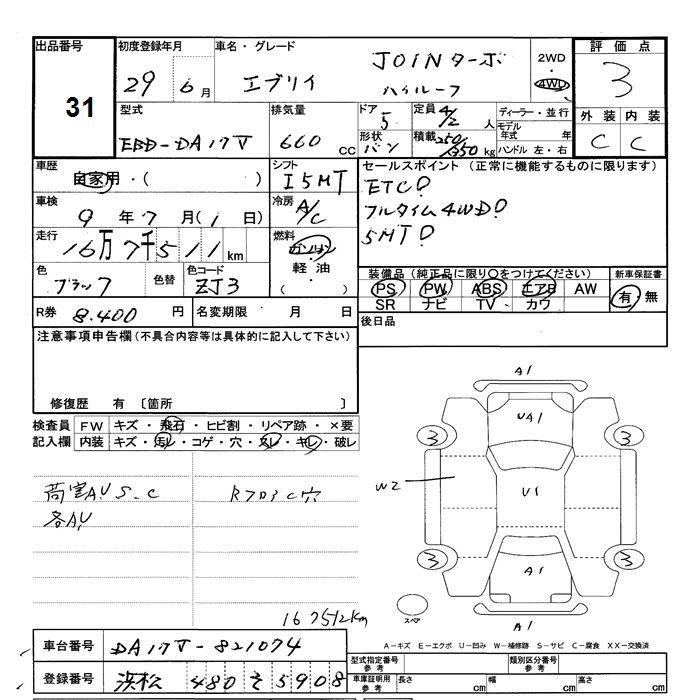 出品番号 31
初度登録年月 29 6月
車名・グレード エブリイ JOINターボ ハイルーフ
2WD 4WD
評価点 3
外装 内装
C C
型式 EBD-DA17V
排気量 660 cc
ドア 5
形状 バン
定員 4/2 人
積載 250/350 kg
ディーラー・並行
モデル年式 年
ハンドル 左・右
車歴 自家用・( )
シフト I5MT
車検 9年7月(1日)
冷房 A/C
走行 16万7千511km
燃料 ガソリン 軽油 ( )
色 ブラック 色替
色コード ZJ3
R券 8.400円
名変期限 月 日
セールスポイント (正常に機能するものに限ります)
ETC!
フルタイム4WD!
5MT!
装備品 (純正品に限り○をつけてください)
新車保証書
PS PW ABS エアB AW
有・無
SR ナビ TV カワ
後日品
注意事項申告欄 (不具合内容等は具体的に記入して下さい)
修復歴 有 〔箇所 〕
検査員記入欄
FW キズ・飛石・ヒビ割・リペア跡・×要
内装 キズ・汚レ・コゲ・穴・スレ・キレ・破レ
荷室AU S.C
各AU
Rフロア C穴
A1
UA1
3 3
W2
U1
3 3
A1
スペア
A1
167512km
A-キズ E-エクボ U-凹み W-補修跡 S-サビ C-腐食 XX-交換済
車台番号 DA17V-821074
登録番号 浜松 480 そ 5908
型式指定番号 参考
類別区分番号 参考
車庫証明用 参考 長さ cm 幅 cm 高さ cm